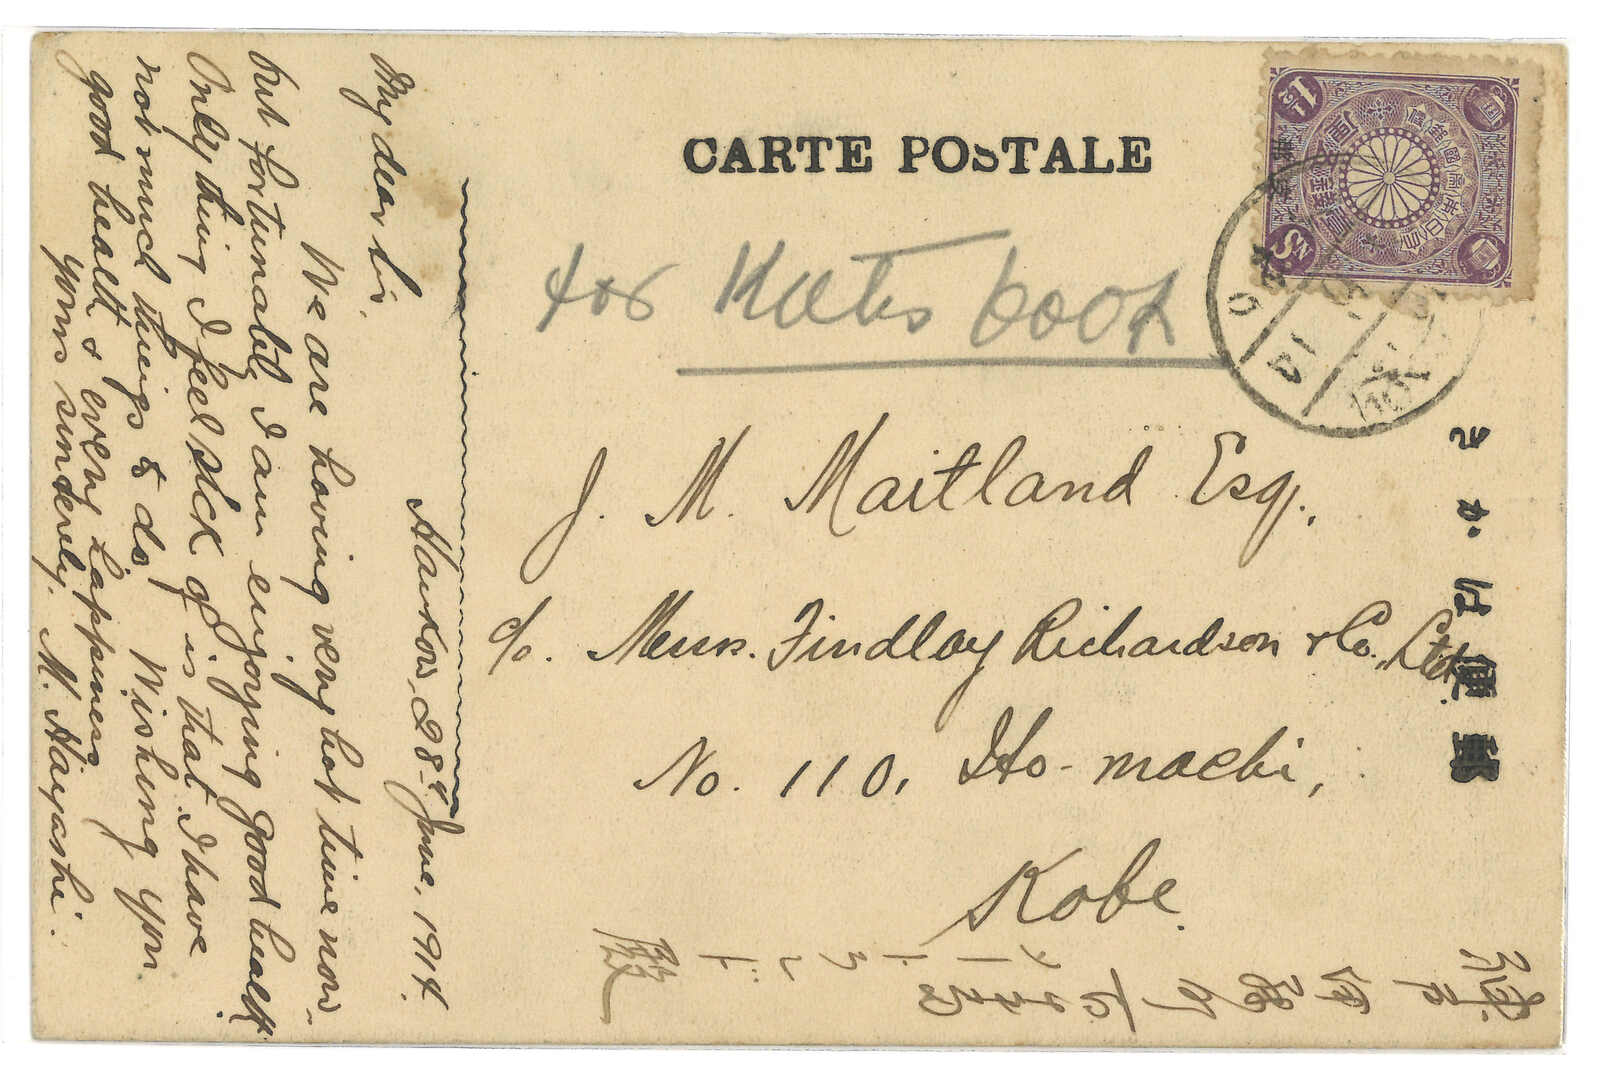 CARTE POSTALE
きがは便郵
1½
SN
for Kates book
J. M. Maitland Esq.,
c/o. Messrs. Findlay Richardson & Co., Ltd.
No. 110, Ito-machi,
Kobe.
Hankow, 28th June, 1914.
My dear Sir,
We are having very hot time now-
but fortunately I am enjoying good health.
Only thing I feel sick of is that I have
not much things to do. Wishing you
good health & every happiness
Yours sincerely, M. Hayashi.